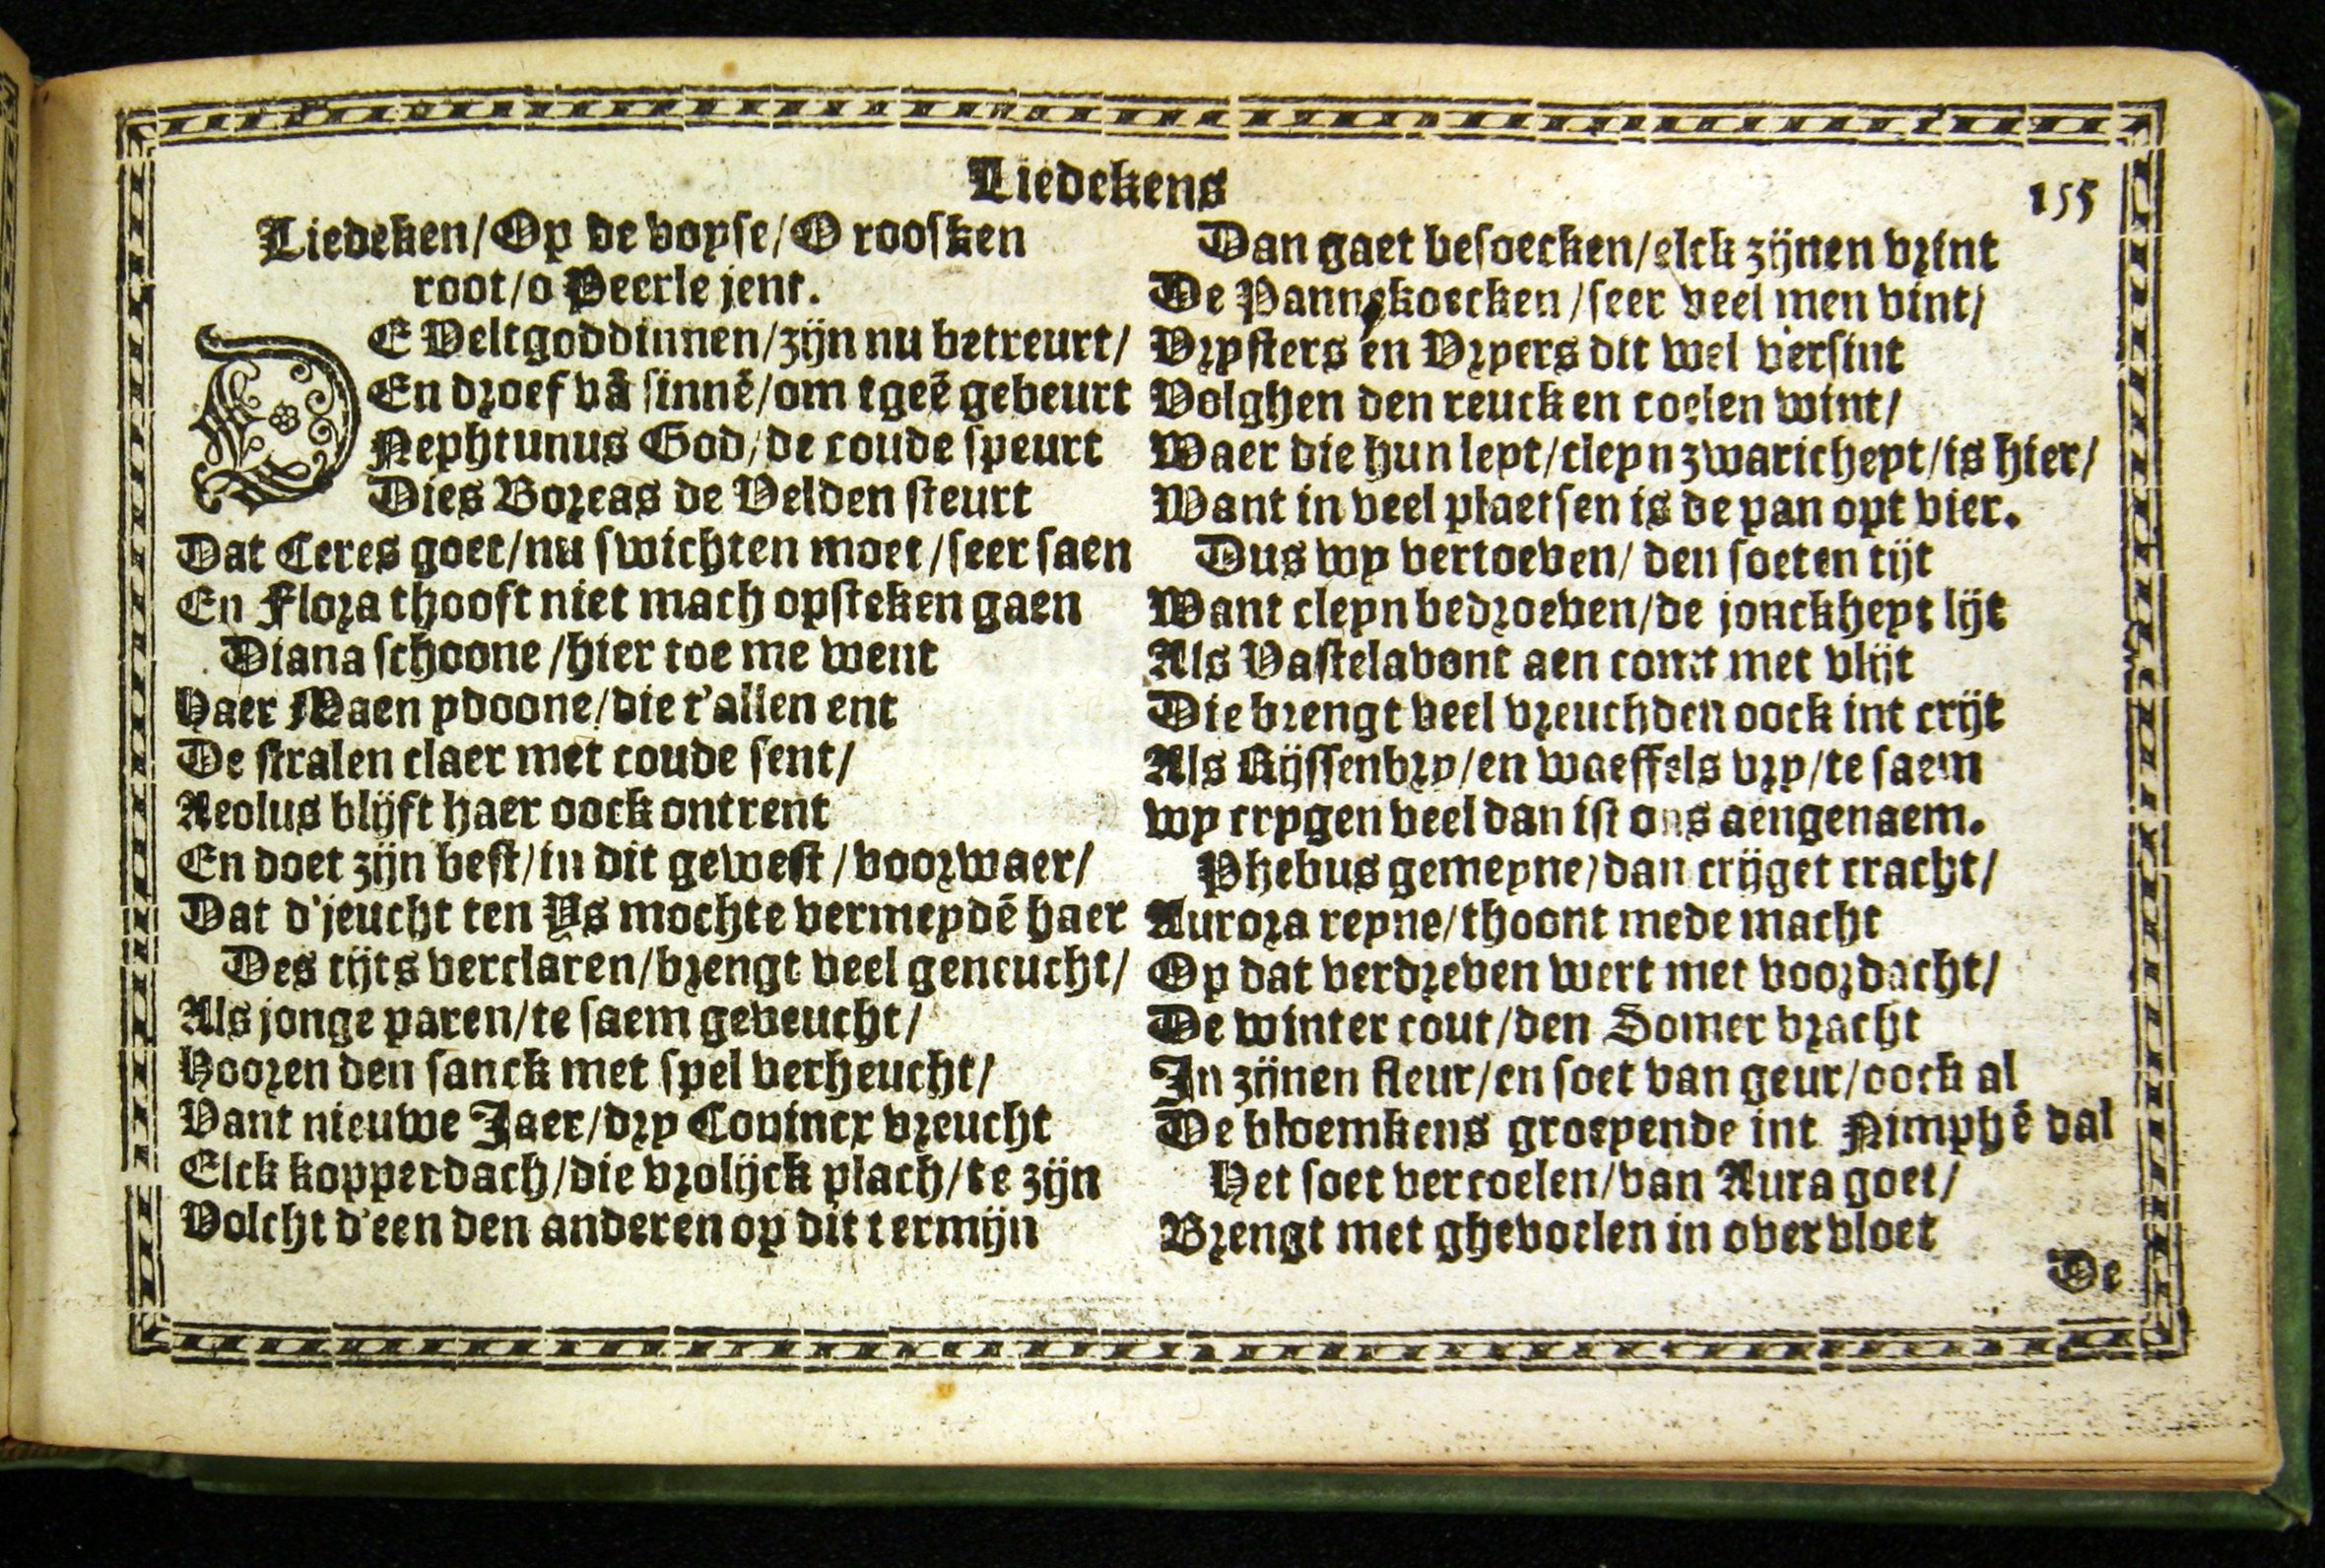 Liedekens
155
Liedeken/Op de voyse/O roosken
root/o Peerle jent.
DE Veltgoddinnen/zijn nu betreurt/
En droef vā sinnē/om tgeē gebeurt
Nephtunus God/de coude speurt
Dies Boreas de Velden steurt
Dat Ceres goet/nu swichten moet/seer saen
En Flora thooft niet mach opsteken gaen
Diana schoone/hier toe me went
Haer Maen ydoone/die t'allen ent
De stralen claer met coude sent/
Aeolus blijft haer oock ontrent
En doet zijn best/in dit gewest/voorwaer/
Dat d'jeucht ten Ys mochte vermeydē haer
Des tijts verclaren/brengt veel geneucht/
Als jonge paren/te saem geveucht/
Hooren den sanck met spel verheucht/
Vant nieuwe Jaer/dry Coninck vreucht
Elck kopperdach/die vrolijck plach/te zijn
Volcht d'een den anderen op dit termijn
Dan gaet besoecken/elck zijnen vrint
De Pannekoecken/seer veel men vint/
Vrysters en Vryers dit wel versint
Volghen den reuck en coelen wint/
Waer die hun leyt/cleyn zwaricheyt/is hier/
Want in veel plaetsen is de pan opt vier.
Dus wy vertoeven/den soeten tijt
Want cleyn bedroeven/de jonckheyt lijt
Als Vastelavont aen comt met vlijt
Die brengt veel vreuchden oock int crijt
Als Rijssenbry/en waeffels vry/te saem
wy crygen veel dan ist ons aengenaem.
Phebus gemeyne/dan crijget cracht/
Aurora reyne/thoont mede macht
Op dat verdreven wert met voordacht/
De winter cout/den Somer bracht
In zijnen fleur/en soet van geur/oock al
De bloemkens groeyende int Nimphē dal
Het soet vercoelen/van Aura goet/
Brengt met ghevoelen in overvloet
De